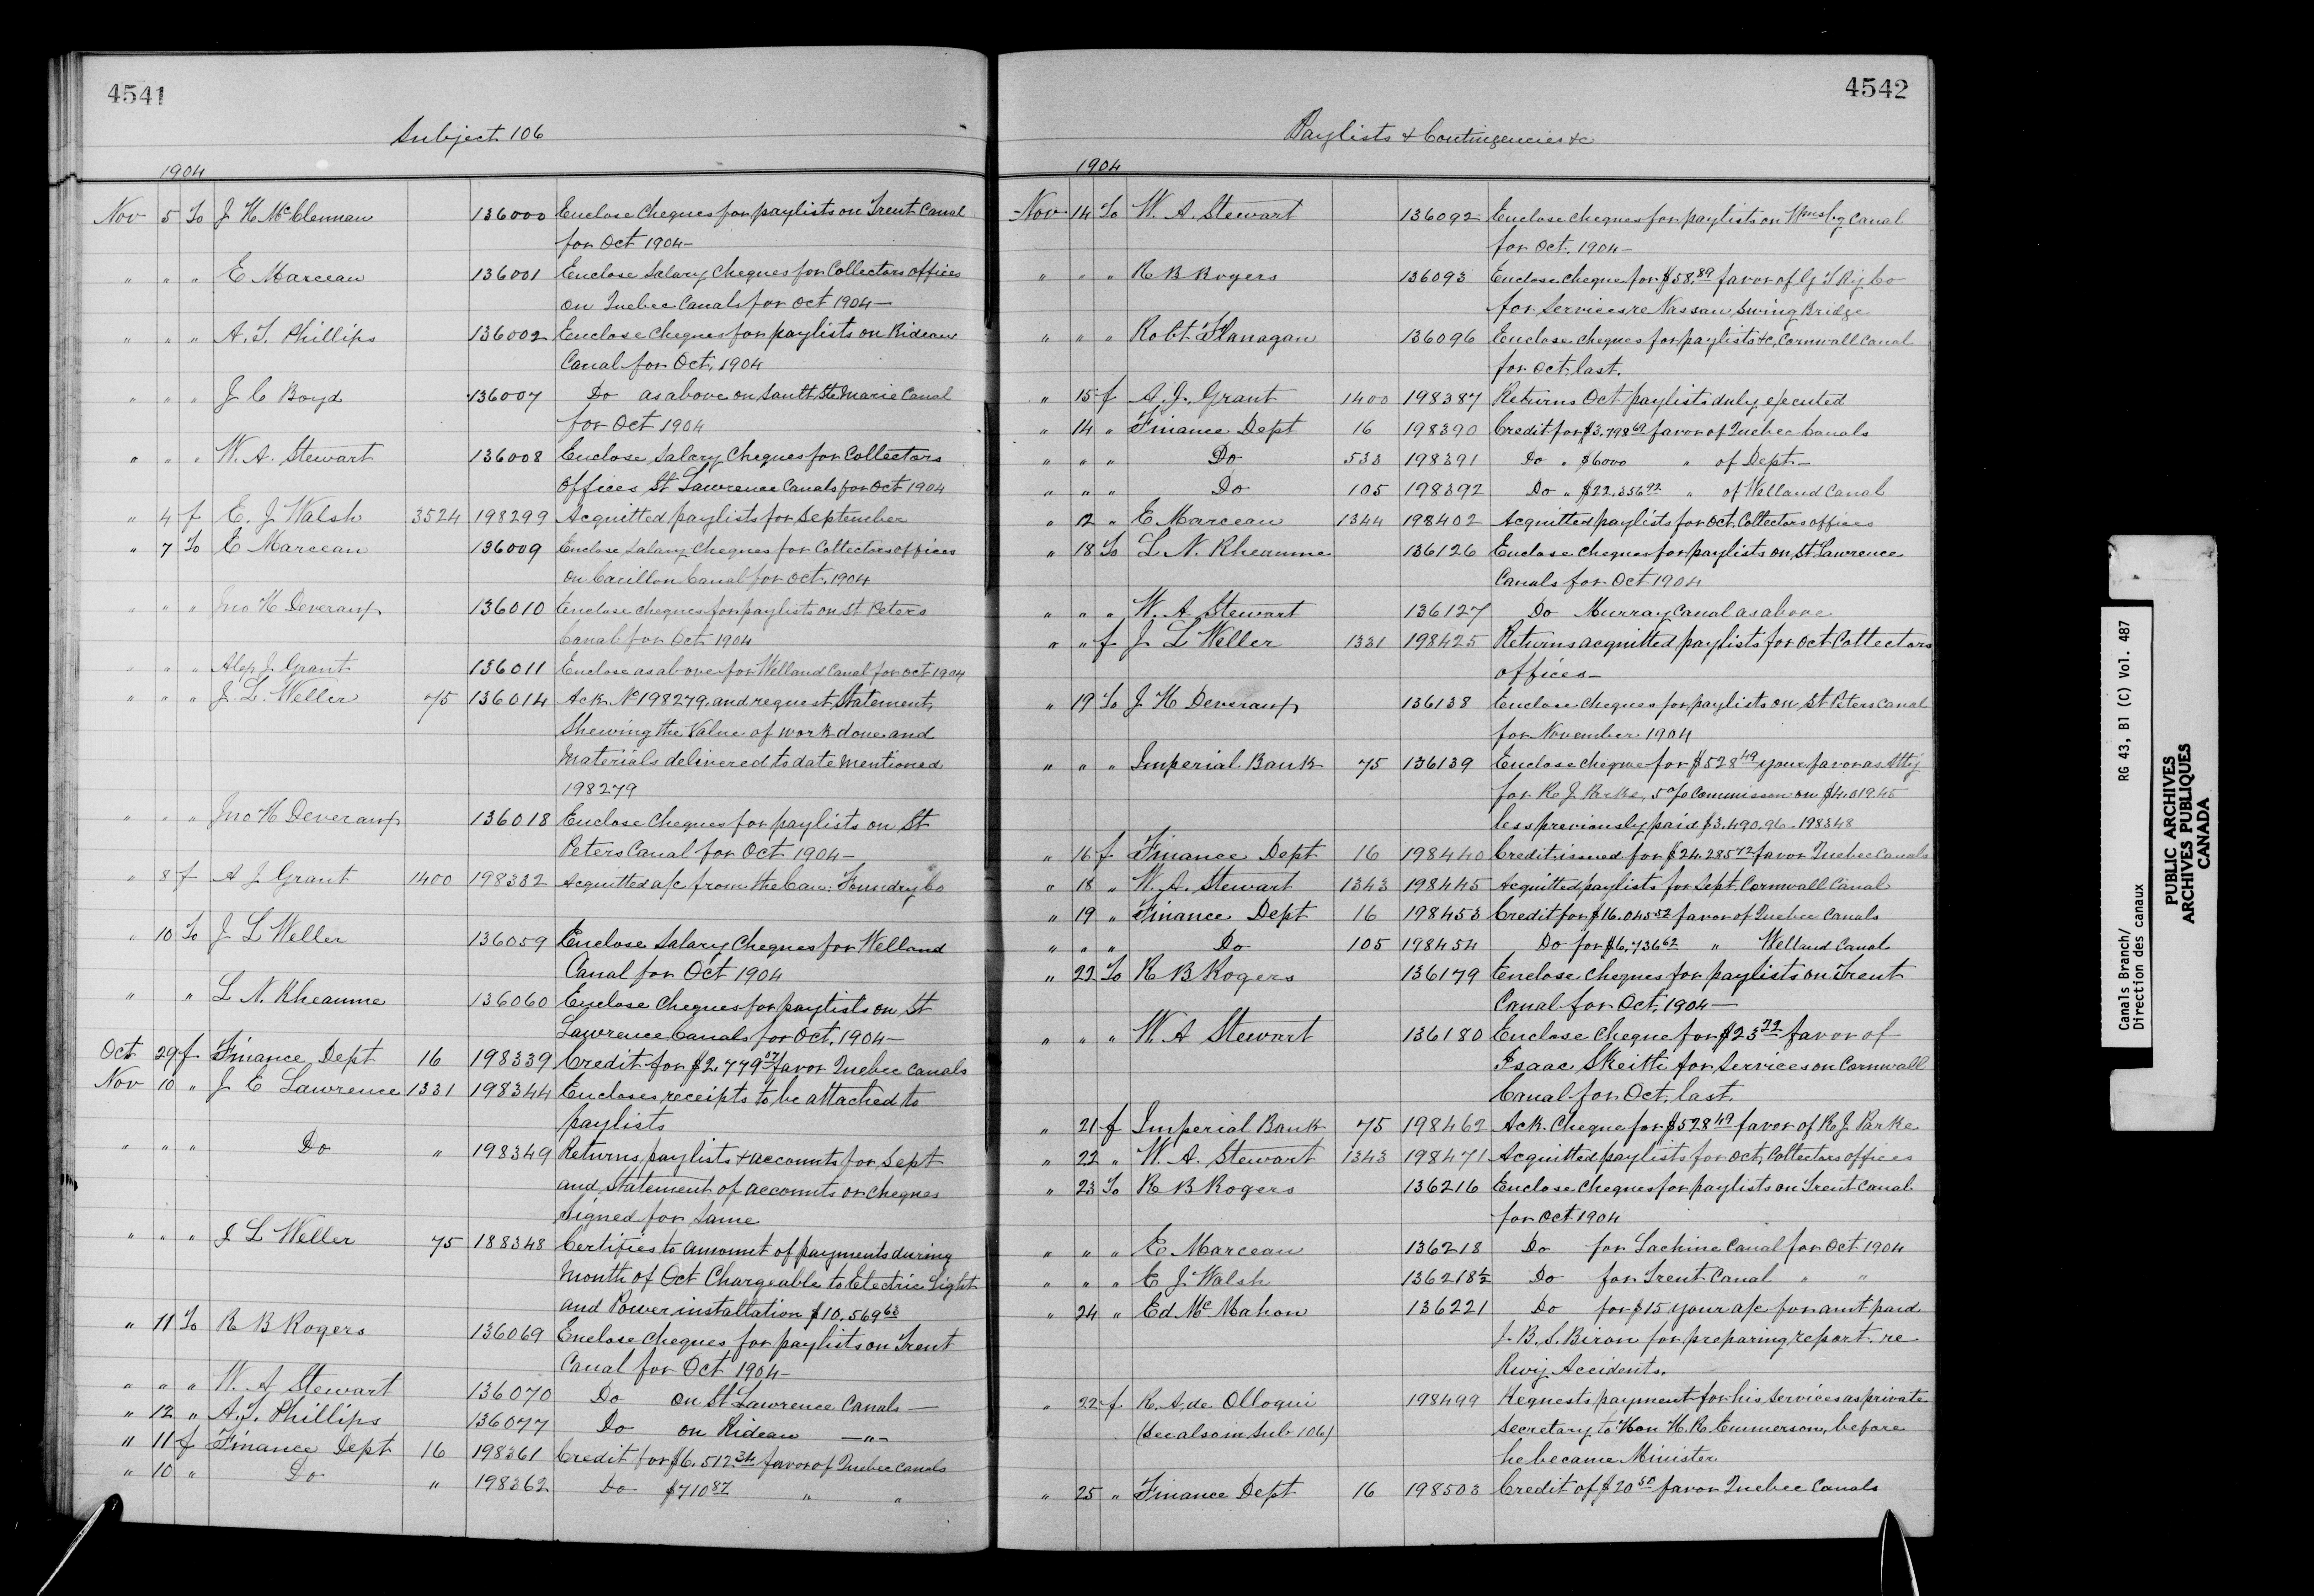 4541
Subject 106
1904
Nov 5 To J H McClennan 136000 Enclose Cheques for paylists on Trent Canal
for Oct 1904—
" " " E Marceau 136001 Enclose Salary Cheques for Collectors Offices
on Quebec Canals for Oct 1904—
" " " A. T. Phillips 136002 Enclose Cheques for paylists on Rideau
Canal for Oct, 1904
" " " J C Boyd 136007 Do as above on Sault Ste Marie Canal
for Oct 1904
" " " W. A. Stewart 136008 Enclose Salary Cheques for Collectors
Offices St Lawrence Canals for Oct 1904
" 4 f E. J Walsh 3524 198299 Acquitted paylists for September
" 7 To E Marceau 136009 Enclose Salary Cheques for Collectors Offices
on Carillon Canal for Oct. 1904
" " " Jno H Deveraux 136010 Enclose cheques for paylists on St Peters
Canal for Oct 1904
" " " Alex J. Grant 136011 Enclose as above for Welland Canal for Oct 1904
" " " J. L. Weller 75 136014 Ack No 198279 and request Statement,
Shewing the Value of work done and
Materials delivered to date mentioned
198279
" " " Jno H Deveraux 136018 Enclose Cheques for paylists on St
Peters Canal for Oct 1904—
" 8 f A J Grant 1400 198332 Acquitted a/c from the Can: Foundry Co
" 10 To J L Weller 136059 Enclose Salary Cheques for Welland
Canal for Oct 1904
" " L N. Rheaume 136060 Enclose Cheques for paylists on St
Lawrence Canals for Oct. 1904—
Oct 29 f Finance Dept 16 198339 Credit for $2,779 07 favor Quebec Canals
Nov 10 " J E Lawrence 1331 198344 Encloses receipts to be attached to
paylists
" " " Do " 198349 Returns paylists & accounts for Sept
and Statement of accounts or cheques
signed for same
" " " J L Weller 75 188348 Certifies to amount of payments during
Month of Oct Chargeable to Electric Light
and Power installation $10,569 63
" 11 To R B Rogers 136069 Enclose cheques for paylists on Trent
Canal for Oct 1904—
" " " W. A Stewart 136070 Do on St Lawrence Canals—
" 12 " A. T. Phillips 136077 Do on Rideau —"—
" 11 f Finance Dept 16 198361 Credit for $6,512.34 favor of Quebec Canals
" 10 " Do " 198362 Do $710 87 " "
4542
Paylists & Contingencies &c
1904
Nov 14 To W. A. Stewart 136092 Enclose cheques for paylists on Wmsbg Canal
for Oct, 1904—
" " " R B Rogers 136093 Enclose cheque for $58.89 favor of G T Ry Co
for Services re Nassau Swing Bridge
" " " Robt Flanagan 136096 Enclose cheques for paylists &c, Cornwall Canal
for Oct last.
" 15 f A. J. Grant 1400 198387 Returns Oct paylists duly executed
" 14 " Finance Dept 16 198390 Credit for $3,798 69 favor of Quebec Canals
" " " Do 533 198391 Do " $6000 " of Dept—
" " " Do 105 198392 Do " $22,356 92 " of Welland Canal
" 12 " E Marceau 1344 198402 Acquitted paylists for Oct, Collectors offices
" 18 To L. N. Rheaume 136126 Enclose cheques for paylists on St Lawrence
Canals for Oct 1904
" " " W. A Stewart 136127 Do Murray Canal as above
" " f J L Weller 1331 198425 Returns acquitted paylists for Oct Collectors
offices—
" 19 To J H Deveraux 136138 Enclose cheques for paylists on St Peters Canal
for November 1904
" " " Imperial Bank 75 136139 Enclose cheque for $528 49 your favor as Atty
for R J Parke, 5% Commission on $4,019.45
less previously paid $3,490.96 - 198348
" 16 f Finance Dept 16 198440 Credit issued for $24,285 72 favor Quebec Canals
" 18 " W. A. Stewart 1343 198445 Acquitted paylists for Sept. Cornwall Canal
" 19 " Finance Dept 16 198453 Credit for $16,045 32 favor of Quebec Canals
" " " Do 105 198454 Do for $6,736 62 " Welland Canal
" 22 To R B Rogers 136179 Enclose Cheques for paylists on Trent
Canal for Oct, 1904—
" " " W. A Stewart 136180 Enclose cheque for $23 22 favor of
Isaac Skeith for Services on Cornwall
Canal for Oct, last.
" 21 f Imperial Bank 75 198462 Ack. Cheque for $528 49 favor of R J. Parke
" 22 " W. A. Stewart 1343 198471 Acquitted paylists for Oct, Collectors offices
" 23 To R B Rogers 136216 Enclose cheques for paylists on Trent Canal
for Oct 1904
" " " E. Marceau 136218 Do for Lachine Canal for Oct 1904
" " " E J. Walsh 136218½ Do for Trent Canal " "
" 24 " Ed McMahon 136221 Do for $15 your a/c for amt paid
J. B. S. Biron for preparing report re
Rwy Accidents.
" 22 f R. A. de Olloqui 198499 Requests payment for his services as private
(See also in Sub 106) Secretary to Hon H. R. Emmerson, before
he became Minister
" 25 " Finance Dept 16 198503 Credit of $20 50 favor Quebec Canals
Canals Branch/
Direction des canaux
RG 43, B1 (C) Vol. 487
PUBLIC ARCHIVES
ARCHIVES PUBLIQUES
CANADA